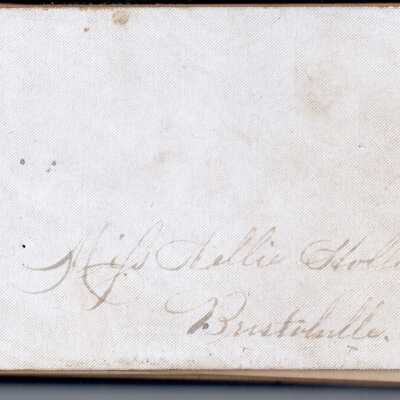 Miss Nellie Holl
Bristolville.